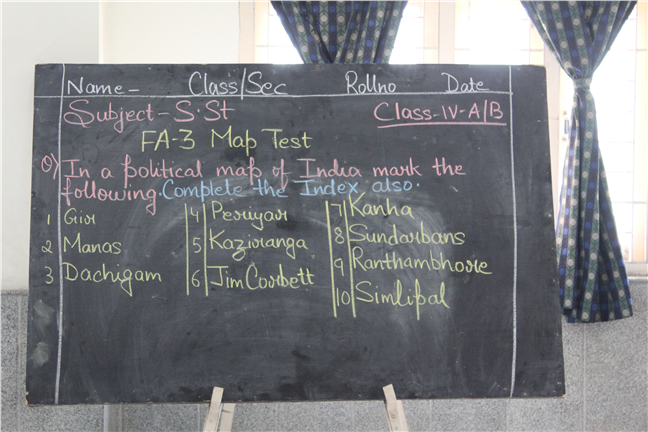 Name- Class/Sec Rollno Date
Subject-S.St Class-IV-A/B
FA-3 Map Test
Q) In a political map of India mark the
following. Complete the Index also.
1 Gir
2 Manas
3 Dachigam
4 Periyar
5 Kaziranga
6 Jim Corbett
7 Kanha
8 Sundarbans
9 Ranthambhore
10 Simlipal